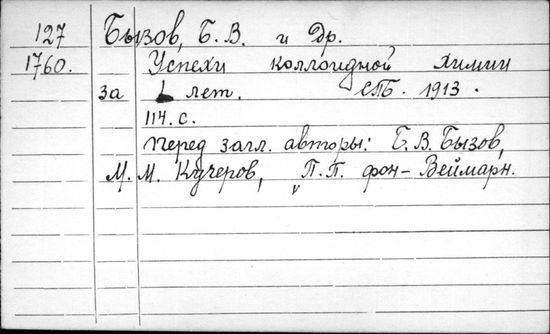 127 Бызов, Б. В. и Др.
1760. Успехи коллоидной химии
за лет. СПБ. 1913.
114. с.
Перед загл. авторы: Б. В. Бызов,
М. М. Кучеров, П. П. фон-Веймарн.